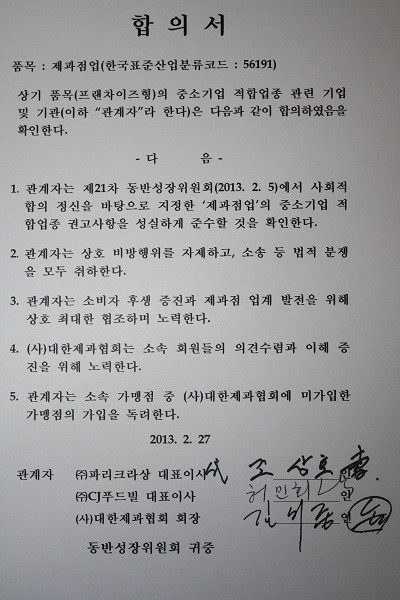 합 의 서
품목 : 제과점업(한국표준산업분류코드 : 56191)
상기 품목(프랜차이즈형)의 중소기업 적합업종 관련 기업
및 기관(이하 “관계자”라 한다)은 다음과 같이 합의하였음을
확인한다.
- 다 음 -
1. 관계자는 제21차 동반성장위원회(2013. 2. 5)에서 사회적
합의 정신을 바탕으로 지정한 ‘제과점업’의 중소기업 적
합업종 권고사항을 성실하게 준수할 것을 확인한다.
2. 관계자는 상호 비방행위를 자제하고, 소송 등 법적 분쟁
을 모두 취하한다.
3. 관계자는 소비자 후생 증진과 제과점 업계 발전을 위해
상호 최대한 협조하며 노력한다.
4. (사)대한제과협회는 소속 회원들의 의견수렴과 이해 증
진을 위해 노력한다.
5. 관계자는 소속 가맹점 중 (사)대한제과협회에 미가입한
가맹점의 가입을 독려한다.
2013. 2. 27
관계자 ㈜파리크라상 대표이사 代 조 상 호 인
㈜CJ푸드빌 대표이사 허 민 회 인
(사)대한제과협회 회장 김 서 중 인
동반성장위원회 귀중